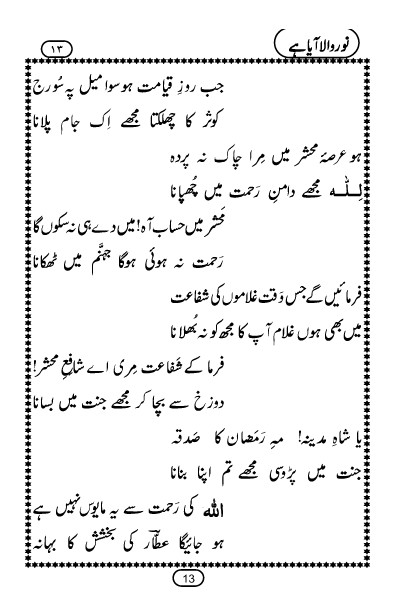 نور والا آیا ہے
۱۳
جب روزِ قیامت ہو سوا میل پہ سُورج
کوثر کا چھلکتا مجھے اِک جام پلانا
ہو عرصۂ محشر میں مِرا چاک نہ پردہ
لِلّٰہ مجھے دامنِ رَحمت میں چُھپانا
مَحْشر میں حساب آہ! میں دے ہی نہ سکوں گا
رَحمت نہ ہوئی ہوگا جہنَّم میں ٹھکانا
فرمائیں گے جس وَقت غلاموں کی شفاعت
میں بھی ہوں غلام آپ کا مجھ کو نہ بُھلانا
فرما کے شَفاعت مِری اے شافِعِ محشر!
دوزخ سے بچا کر مجھے جنت میں بسانا
یا شاہِ مدینہ! مہِ رَمَضان کا صَدقہ
جنت میں پڑوسی مجھے تم اپنا بنانا
اللہ کی رَحمت سے یہ مایوس نہیں ہے
ہو جائیگا عطّارؔ کی بخشش کا بہانہ
13